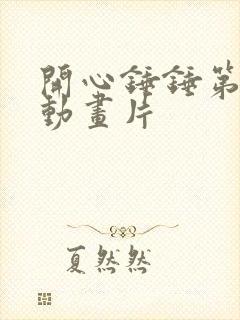 開心錘錘第
動畫片
夏然然